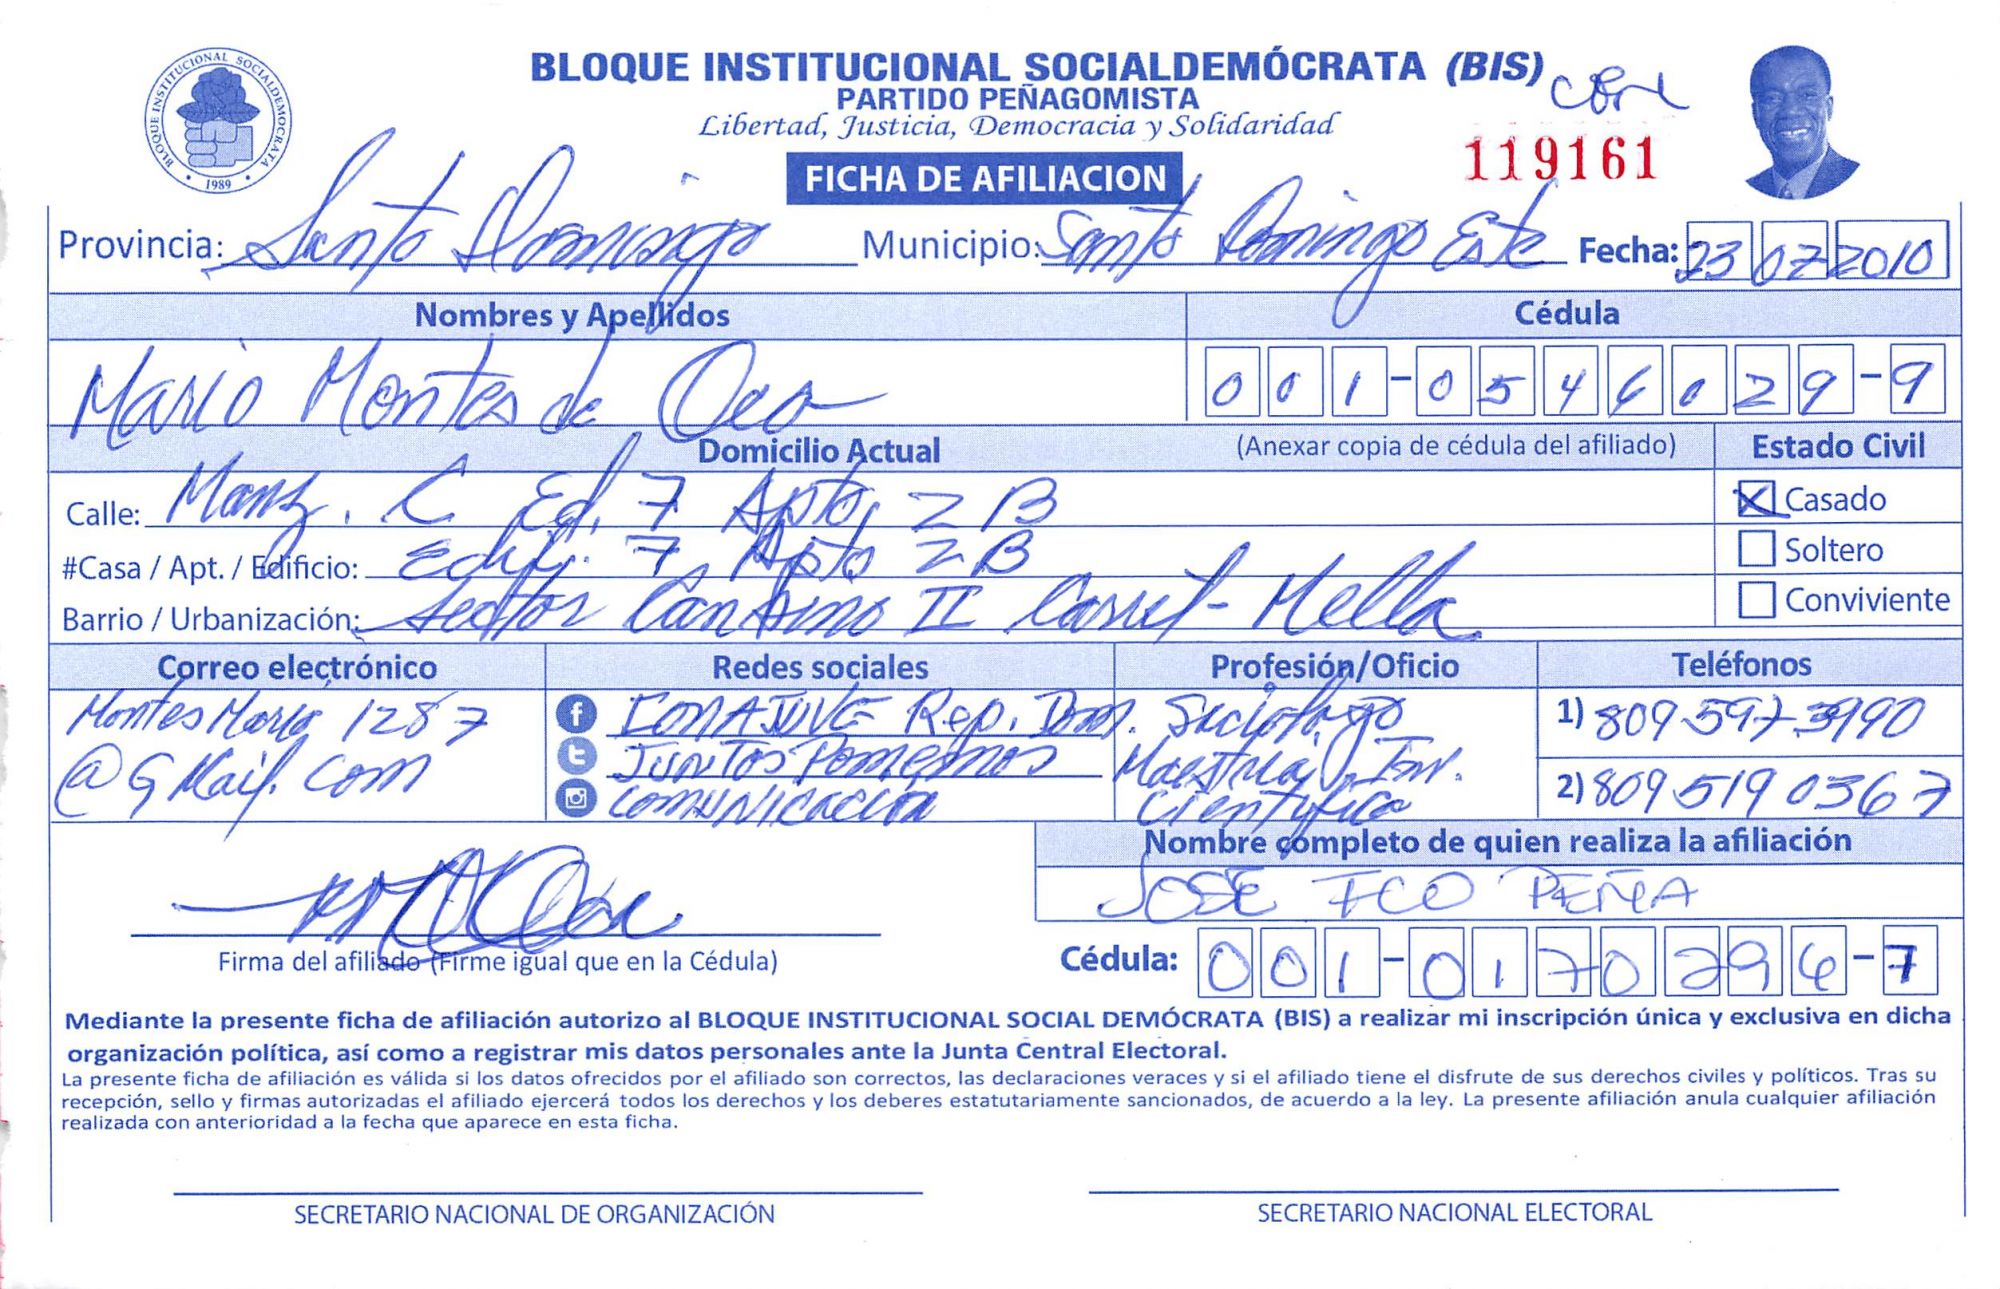 BLOQUE INSTITUCIONAL SOCIALDEMÓCRATA (BIS)
PARTIDO PEÑAGOMISTA
Libertad, Justicia, Democracia y Solidaridad
BLOQUE INSTITUCIONAL SOCIALDEMOCRATA
1989
119161
FICHA DE AFILIACION
Provincia: Santo Domingo Municipio: Santo Domingo Este Fecha: 23 07 2010
Nombres y Apellidos Cédula
Mario Montes de Oca 001-0546029-9
Domicilio Actual (Anexar copia de cédula del afiliado) Estado Civil
Calle: Manz. C Ed. 7 Apto. 2 B Casado
#Casa / Apt. / Edificio: Edif. 7 Apto 2 B Soltero
Barrio / Urbanización: Sector Cansino II Carret- Mella Conviviente
Correo electrónico Redes sociales Profesión/Oficio Teléfonos
Montes Mario 1287 CONAJUVE Rep. Dom. Sociólogo 1) 809.597-3990
@GMail.com JUNTOS Podemos Maestría Inv.
COMUNICACIÓN Científica 2) 809 519 0367
Nombre completo de quien realiza la afiliación
JOSE FCO PEÑA
Firma del afiliado (Firme igual que en la Cédula) Cédula: 001-0170296-7
Mediante la presente ficha de afiliación autorizo al BLOQUE INSTITUCIONAL SOCIAL DEMÓCRATA (BIS) a realizar mi inscripción única y exclusiva en dicha
organización política, así como a registrar mis datos personales ante la Junta Central Electoral.
La presente ficha de afiliación es válida si los datos ofrecidos por el afiliado son correctos, las declaraciones veraces y si el afiliado tiene el disfrute de sus derechos civiles y políticos. Tras su
recepción, sello y firmas autorizadas el afiliado ejercerá todos los derechos y los deberes estatutariamente sancionados, de acuerdo a la ley. La presente afiliación anula cualquier afiliación
realizada con anterioridad a la fecha que aparece en esta ficha.
SECRETARIO NACIONAL DE ORGANIZACIÓN SECRETARIO NACIONAL ELECTORAL